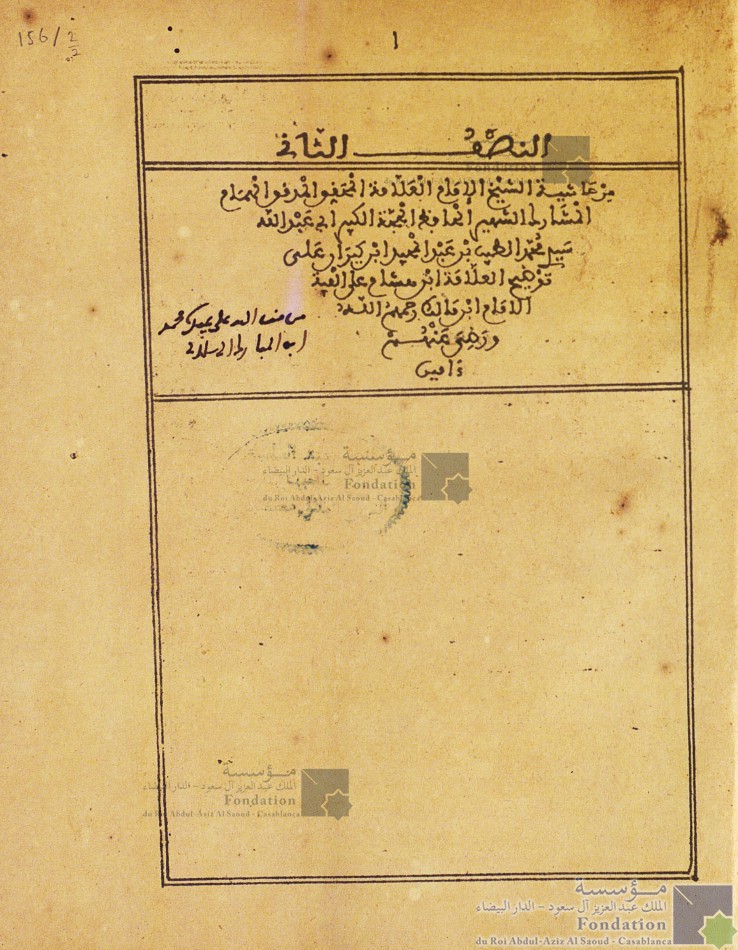 156/2/2
1
النصف الثاني
من حاشية الشيخ الإمام العلامة المحقق المدقق الهمام
المشارك الشهير الحافظ الحجة الكبير أبي عبد الله
سيدي محمد الطيب بن عبد المجيد ابن كيران على
توضيح العلامة ابن هشام على ألفية
الإمام ابن مالك رحمهم الله
ورضي عنهم
ءامين
من الله على عبيده محمد
ابن المبارك
مؤسسة
الملك عبد العزيز آل سعود - الدار البيضاء
Fondation
du Roi Abdul-Aziz Al Saoud - Casablanca
مؤسسة
الملك عبد العزيز آل سعود - الدار البيضاء
Fondation
du Roi Abdul-Aziz Al Saoud - Casablanca
مؤسسة
الملك عبد العزيز آل سعود - الدار البيضاء
Fondation
du Roi Abdul-Aziz Al Saoud - Casablanca